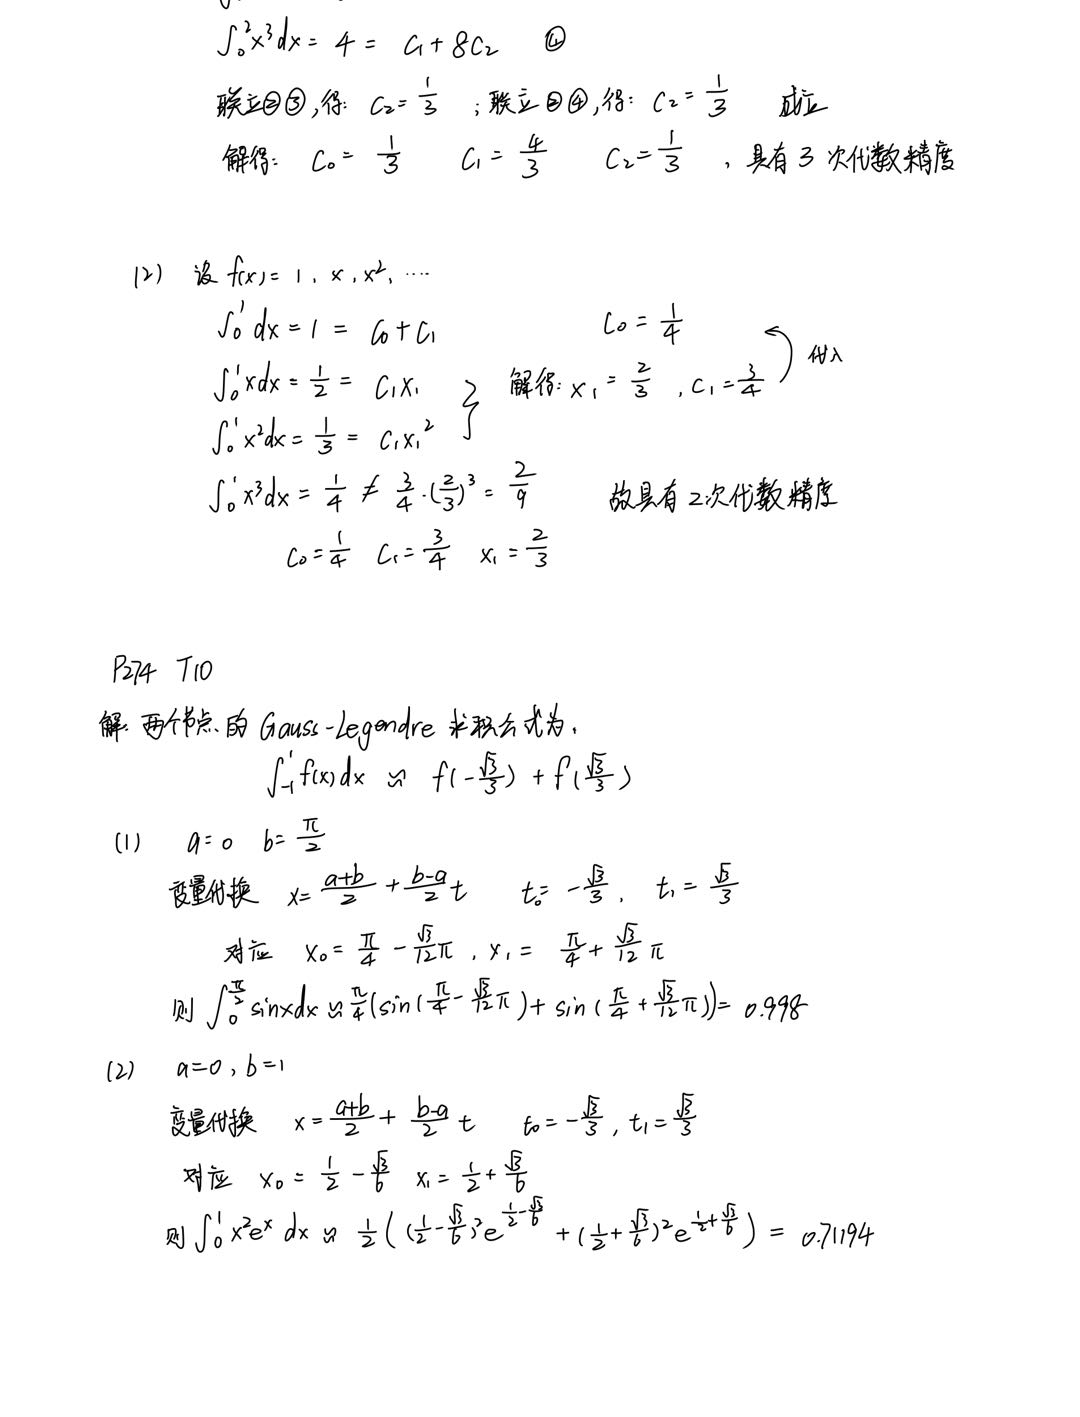 ∫₀² x³dx = 4 = C₁ + 8C₂ ④
联立②③,得: C₂ = 1/3 ; 联立②④,得: C₂ = 1/3 成立
解得: C₀ = 1/3 C₁ = 4/3 C₂ = 1/3 , 具有 3 次代数精度
(2) 设 f(x) = 1, x, x², ....
∫₀¹ dx = 1 = C₀ + C₁ C₀ = 1/4
∫₀¹ xdx = 1/2 = C₁x₁ 解得: x₁ = 2/3 , C₁ = 3/4 代入
∫₀¹ x²dx = 1/3 = C₁x₁²
∫₀¹ x³dx = 1/4 ≠ 3/4·(2/3)³ = 2/9 故具有2次代数精度
C₀ = 1/4 C₁ = 3/4 x₁ = 2/3
P274 T10
解: 两个节点的 Gauss-Legendre 求积公式为,
∫₋₁¹ f(x)dx ≈ f(-√3/3) + f(√3/3)
(1) a=0 b=π/2
变量代换 x = (a+b)/2 + (b-a)/2 t t₀ = -√3/3, t₁ = √3/3
对应 x₀ = π/4 - √3/12 π , x₁ = π/4 + √3/12 π
则 ∫₀^(π/2) sinxdx ≈ π/4 (sin(π/4 - √3/12 π) + sin(π/4 + √3/12 π)) = 0.998
(2) a=0, b=1
变量代换 x = (a+b)/2 + (b-a)/2 t t₀ = -√3/3, t₁ = √3/3
对应 x₀ = 1/2 - √3/6 x₁ = 1/2 + √3/6
则 ∫₀¹ x²eˣ dx ≈ 1/2 ((1/2 - √3/6)² e^(1/2 - √3/6) + (1/2 + √3/6)² e^(1/2 + √3/6)) = 0.71194